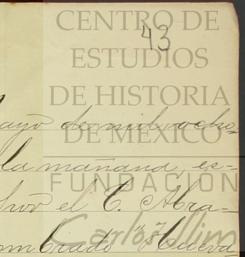 43
CENTRO DE
ESTUDIOS
DE HISTORIA
DE MÉXICO
FUNDACIÓN
Carlos Slim
ayo de mil ocho
la mañana, es-
el C. Abra-
Criado